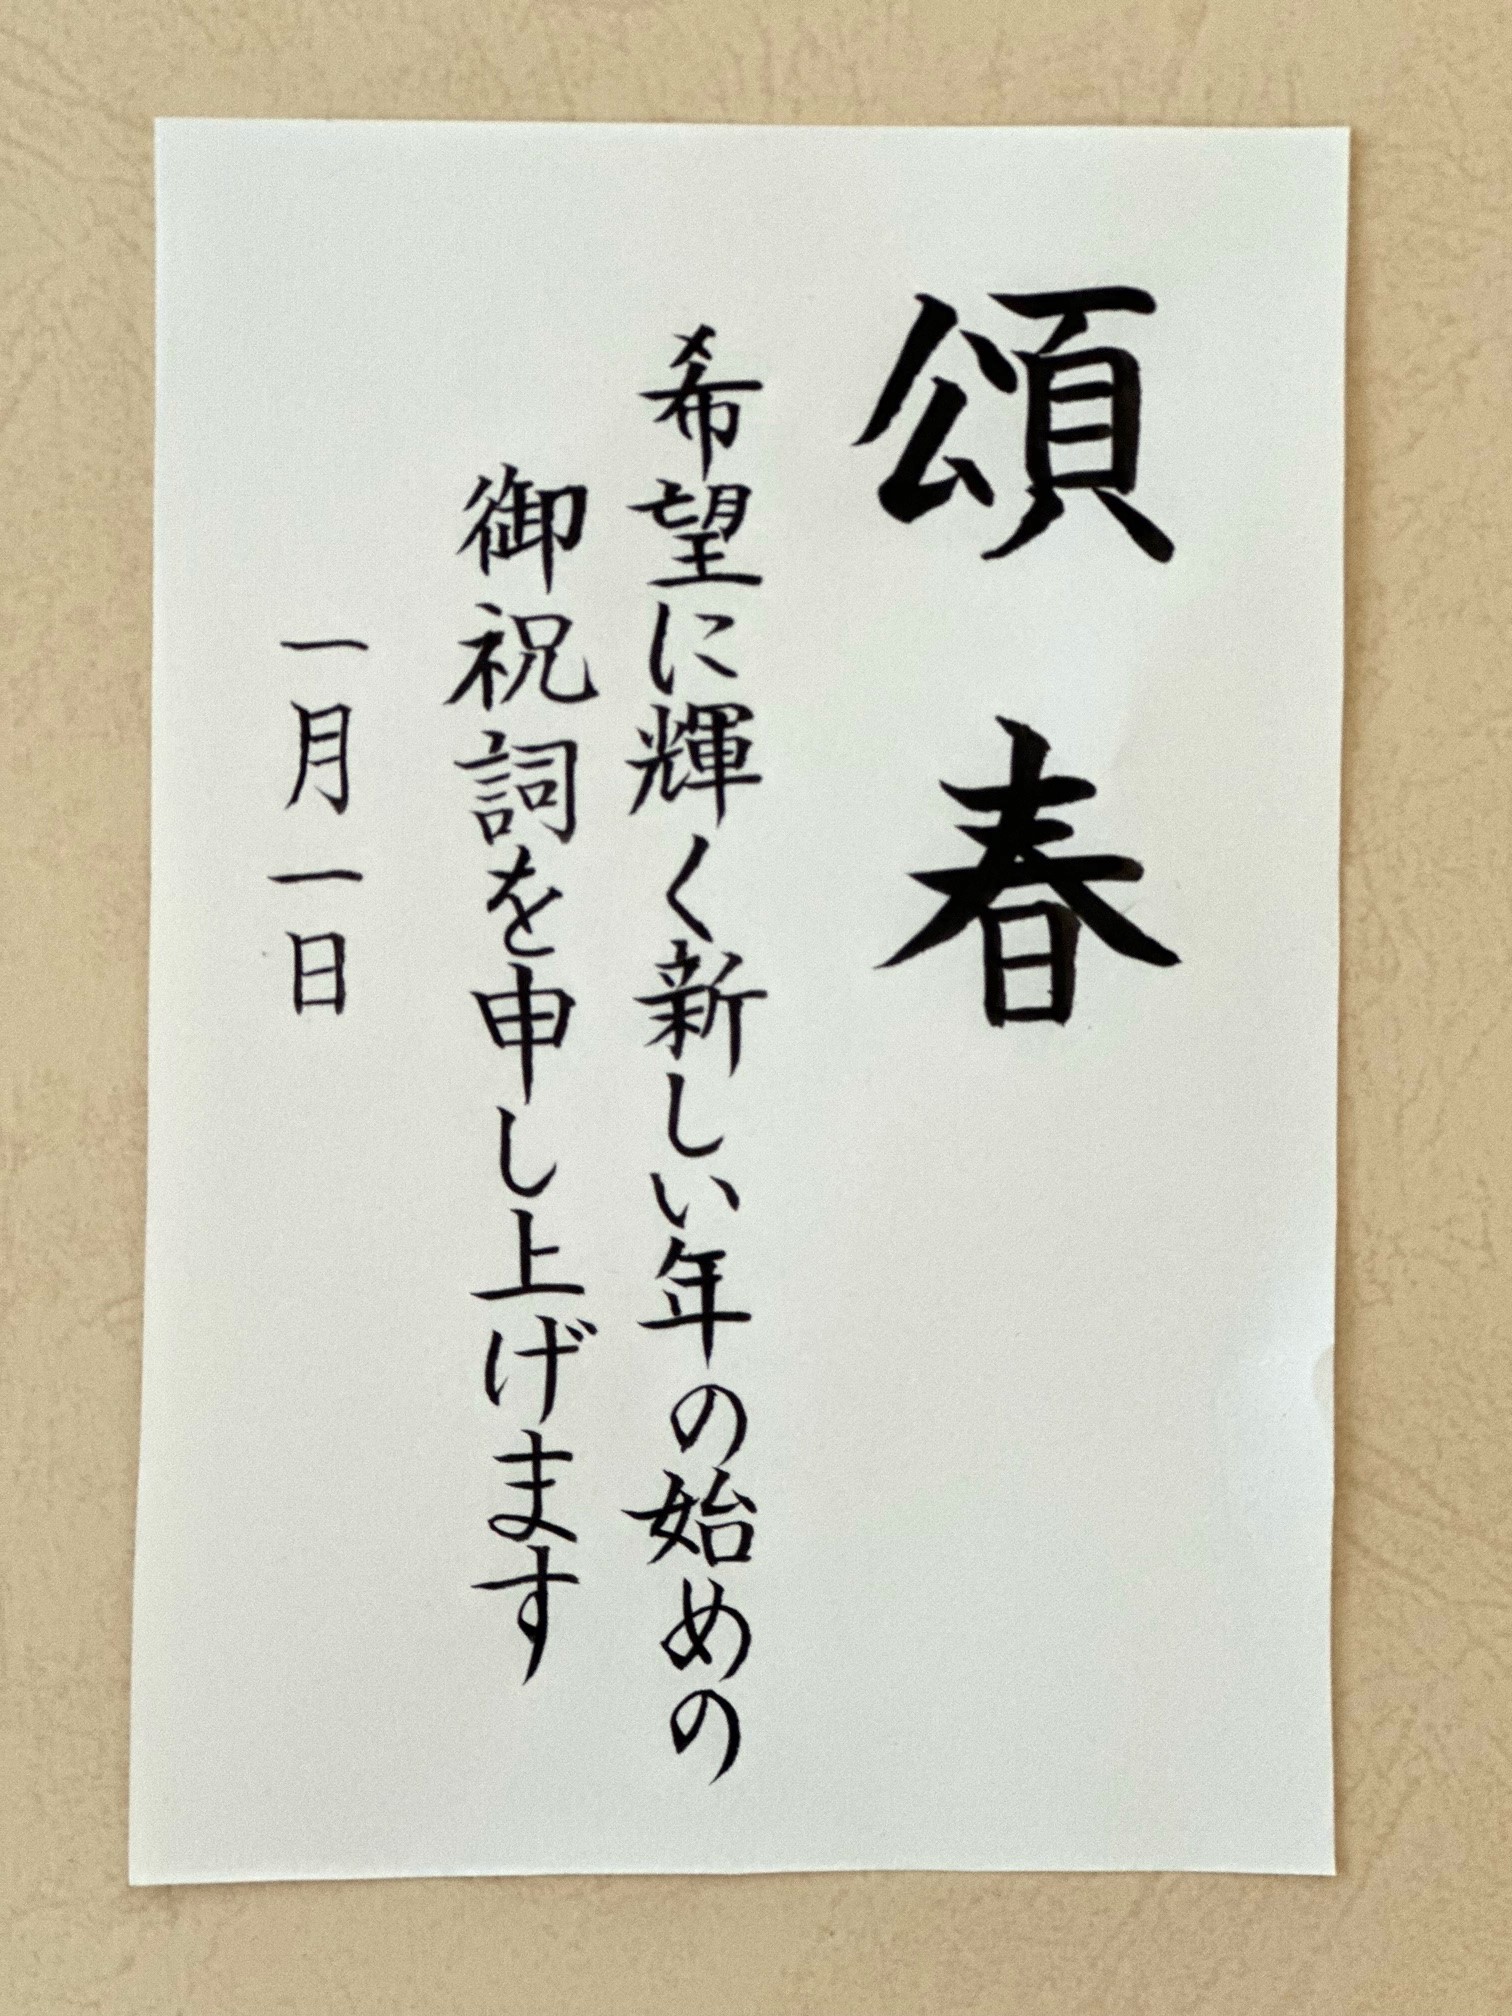 頌春
希望に輝く新しい年の始めの
御祝詞を申し上げます
一月一日